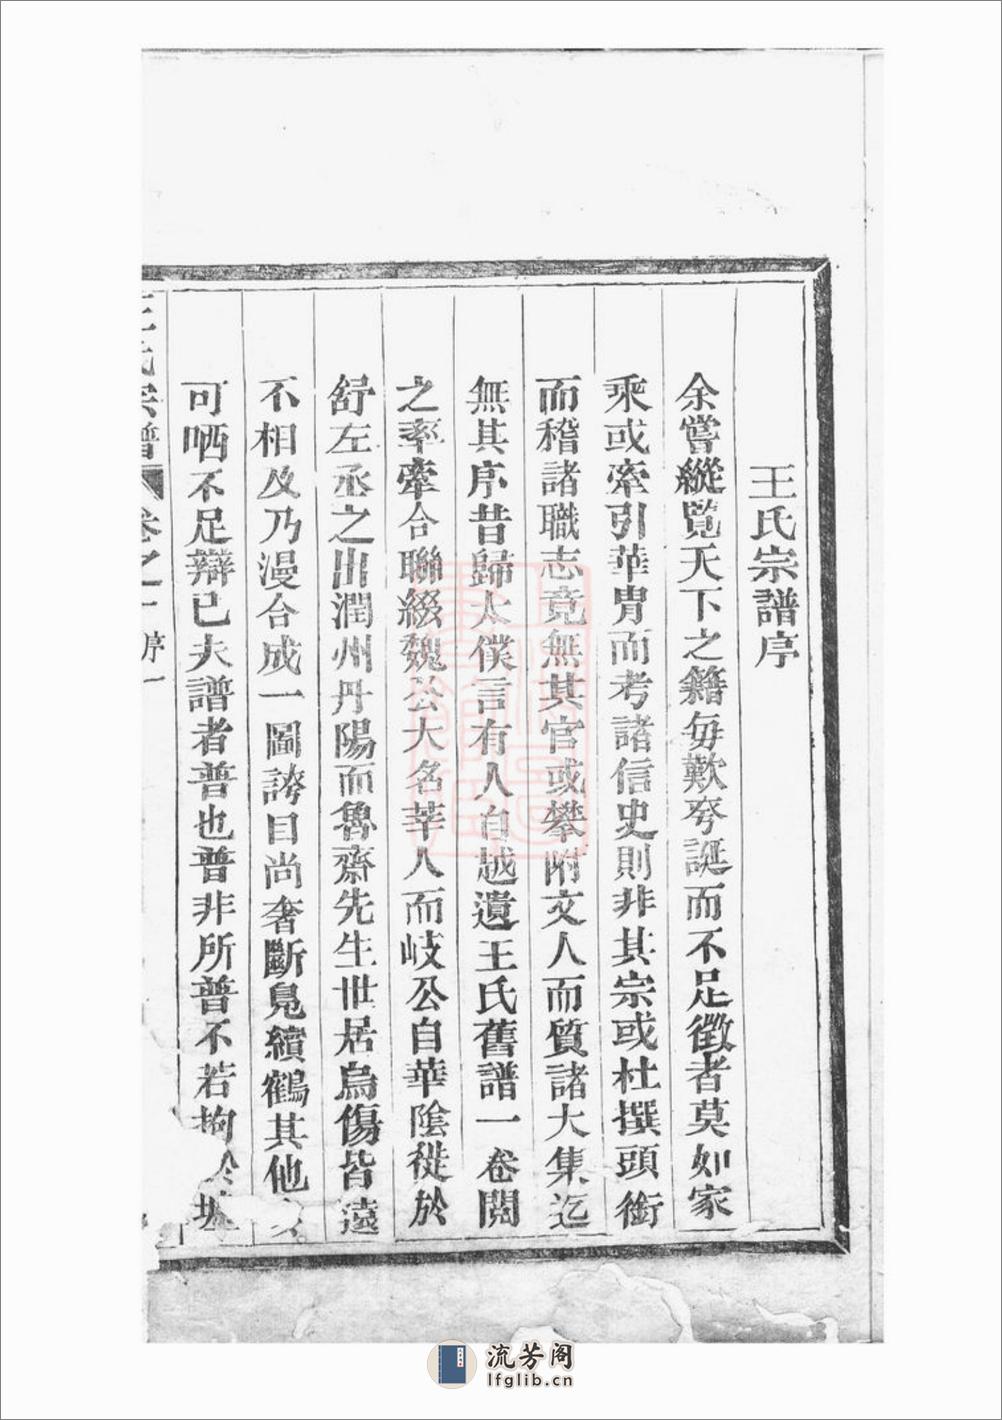 王氏宗譜序
余嘗縱覽天下之籍每歎夸誕而不足徵者莫如家
乘或牽引華冑而考諸信史則非其宗或杜撰頭銜
而稽諸職志竟無其官或攀附文人而質諸大集迄
無其序昔歸太僕言有人自越遺王氏舊譜一卷閱
之率牽合聯綴魏公大名莘人而岐公自華陰徙於
舒左丞之出潤州丹陽而魯齋先生世居烏傷皆遠
不相及乃漫合成一圖誇目尚奢斷鳧續鶴其他
可哂不足辯已夫譜者普也普非所普不若拘於
王氏宗譜 卷之一 序 一
流芳阁
lfglib.cn